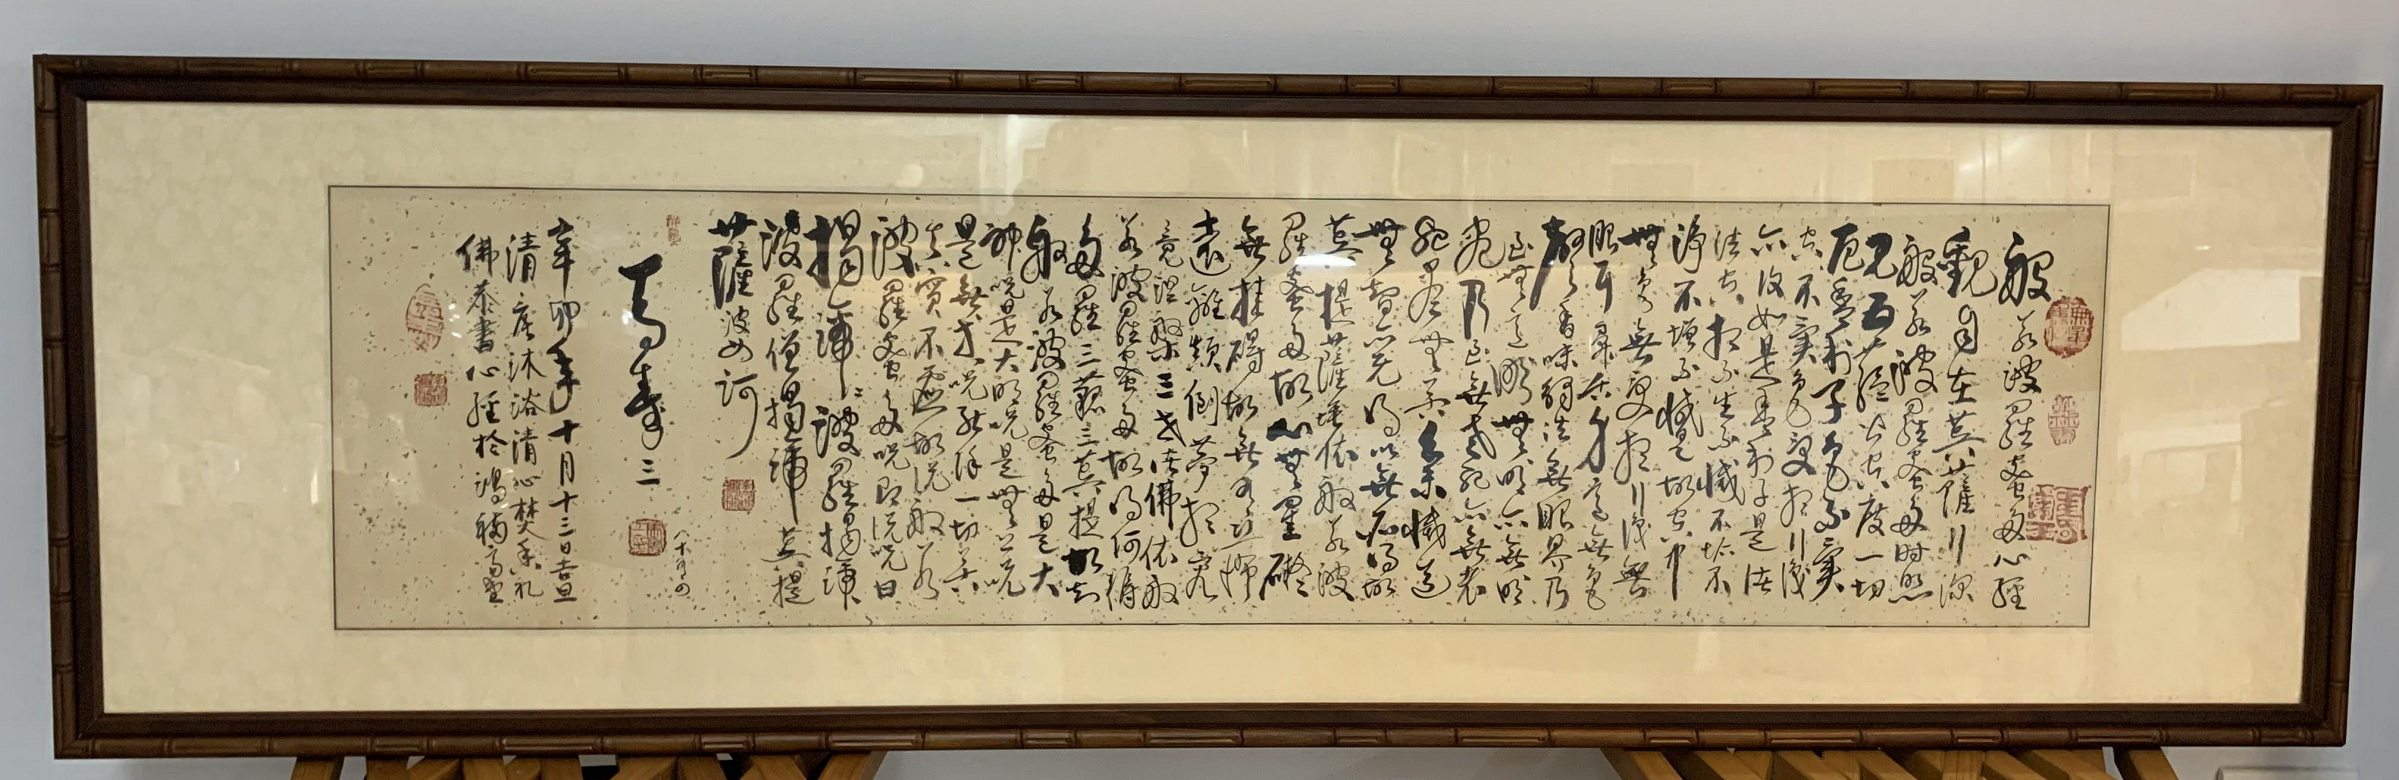 般若波羅蜜多心經
觀自在菩薩行深
般若波羅蜜多時照
見五蘊皆空度一切
厄舍利子色不異
空空不異色受想行識
亦復如是舍利子是諸
法空相不生不滅不垢不
淨不增不減是故空中
無色無受想行識無
眼耳鼻舌身意無色
聲香味觸法無眼界乃
至無意識無無明亦無無明
盡乃至無老死亦無老
死盡無苦集滅道
無智亦無得以無所得故
菩提薩埵依般若波
羅蜜多故心無罣礙
無罣礙故無有恐怖
遠離顛倒夢想究
竟涅槃三世諸佛依般
若波羅蜜多故得阿耨
多羅三藐三菩提故知
般若波羅蜜多是大
神咒是大明咒是無上咒
是無等等咒能除一切苦
真實不虛故說般若
波羅蜜多咒即說咒曰
揭諦揭諦波羅揭諦
波羅僧揭諦菩提
薩婆訶
馬壽三
八十有四
辛卯年十月十三日吉旦
清晨沐浴清心焚香礼
佛恭書心經於鴻